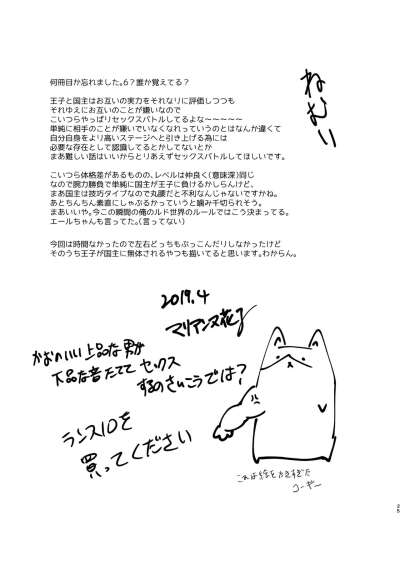 何冊目か忘れました。6？誰か覚えてる？
ねむい
王子と国主はお互いの実力をそれなりに評価しつつも
それゆえにお互いのことが嫌いなので
こいつらやっぱりセックスバトルしてるよな〜〜〜〜〜
単純に相手のことが嫌いでいなくなれっていうのとはなんか違くて
自分自身をより高いステージへと引き上げる為には
必要な存在として認識してるとかしてないとか
まあ難しい話はいいからとりあえずセックスバトルしてほしいです。
こいつら体格差があるものの、レベルは仲良く(意味深)同じ
なので腕力勝負で単純に国主が王子に負けるかしらんけど、
まあ国主は技巧タイプなので丸腰だと不利なんじゃないですかね。
あとちんちん素直にしゃぶるかっていうと噛み千切られそう。
まあいいや。今この瞬間の俺のルド世界のルールではこう決まってる。
エールちゃんも言ってた。(言ってない)
今回は時間なかったので左右どっちもぶっこんだりしなかったけど
そのうち王子が国主に無体されるやつも描いてると思います。わからん。
2019.4
マリアンヌ花子
かおのいい上品な男が
下品な音たててセックス
するのさいこうでは？
ランス10を
買ってください
これは絵を描きすぎた
コーギー
25